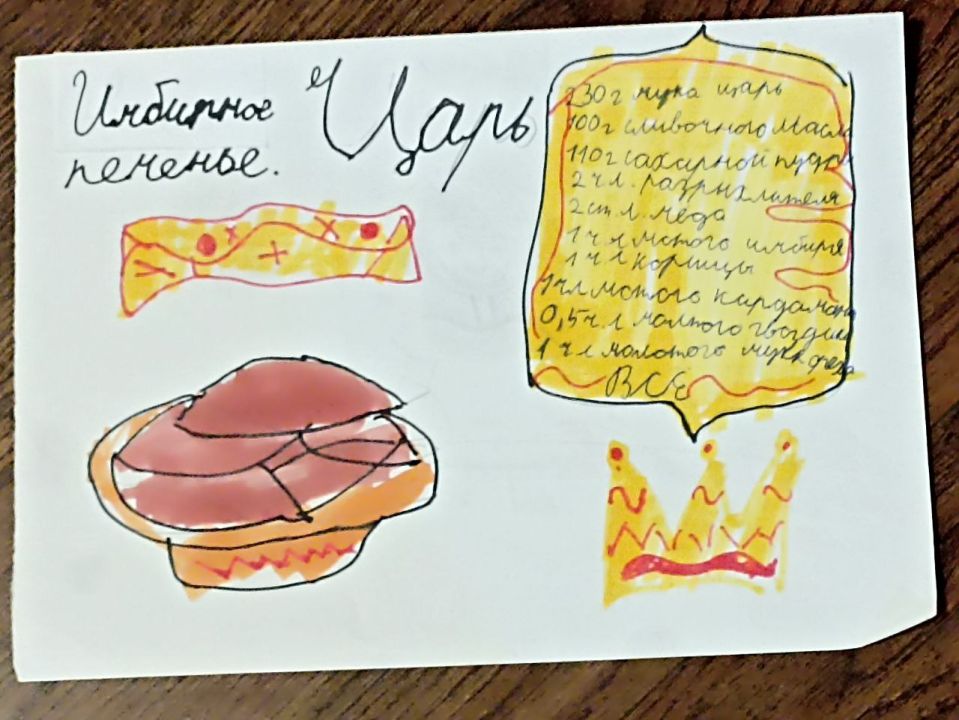 Имбирное
печенье.
"Царь
230г мука царь
100г сливочного масла
110г сахарной пудры
2 ч л. разрыхлителя
2 ст л. меда
1 ч л мотого имбиря
1 ч л корицы
1 ч л мотого кардамона
0,5 ч. л молтого гвоздики
1 ч л молотого муск ореха
ВСЕ